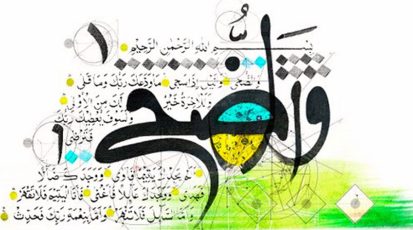 ١
بِسْمِ اللّٰهِ الرَّحْمٰنِ الرَّحِيْمِ
وَالضُّحٰى
وَالضُّحٰى وَالَّيْلِ اِذَا سَجٰى
مَا وَدَّعَكَ رَبُّكَ وَمَا قَلٰى
وَلَلْاٰخِرَةُ خَيْرٌ لَّكَ مِنَ الْاُوْلٰى
وَلَسَوْفَ يُعْطِيْكَ رَبُّكَ
فَتَرْضٰى
١
اَلَمْ يَجِدْكَ يَتِيْمًا فَاٰوٰى وَوَجَدَكَ ضَآلًّا
فَهَدٰى وَوَجَدَكَ عَآئِلًا فَاَغْنٰى فَاَمَّا الْيَتِيْمَ فَلَا تَقْهَرْ
وَاَمَّا السَّآئِلَ فَلَا تَنْهَرْ وَاَمَّا بِنِعْمَةِ رَبِّكَ فَحَدِّثْ